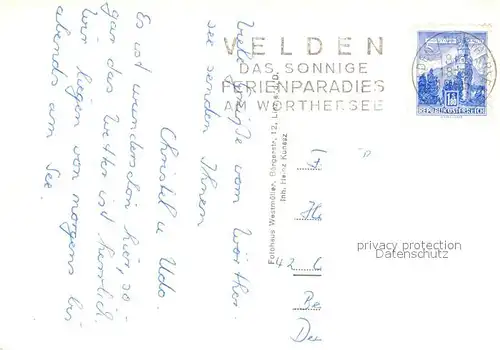 Viele Grüße vom Wörther-
see senden Ihnen
Christel u Udo.
Es ist wunderschön hier, so-
gar das Wetter ist herrlich.
Wir liegen von morgens bis
abends am See.
VELDEN
DAS SONNIGE
FERIENPARADIES
AM WÖRTHERSEE
REPUBLIK ÖSTERREICH
Fotohaus Westmüller, Bürgerstr. 12, Linz a. d. D.
Inh. Heinz Kunesz
42
Be
De
privacy protection
Datenschutz